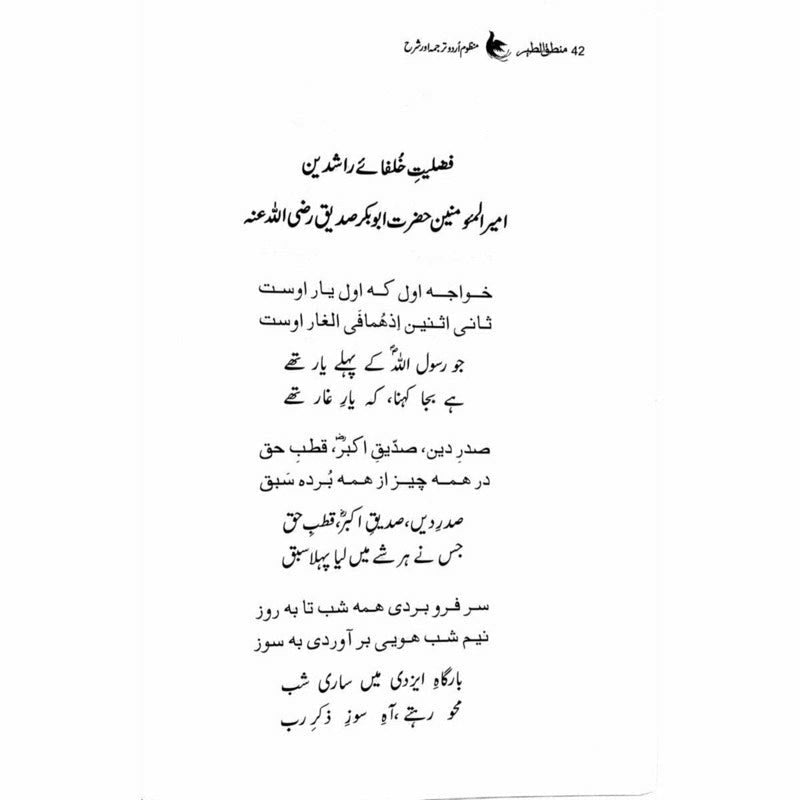 42 منطق الطیر منظوم اُردو ترجمہ اور شرح
فضلیتِ خُلفائے راشدین
امیر المؤمنین حضرت ابوبکر صدیق رضی اللہ عنہ
خواجه اول که اول یار اوست
ثانی اثنین اِذهُمافَی الغار اوست
جو رسول اللہؐ کے پہلے یار تھے
ہے بجا کہنا، کہ یارِ غار تھے
صدرِ دین، صدّیقِ اکبرؓ، قطبِ حق
در همه چیز از همه بُرده سَبق
صدرِ دیں، صدیقِ اکبرؓ، قطبِ حق
جس نے ہر شے میں لیا پہلا سبق
سر فرو بردی همه شب تا به روز
نیم شب هویی بر آوردی به سوز
بارگاہِ ایزدی میں ساری شب
محو رہتے، آہِ سوزِ ذکرِ رب